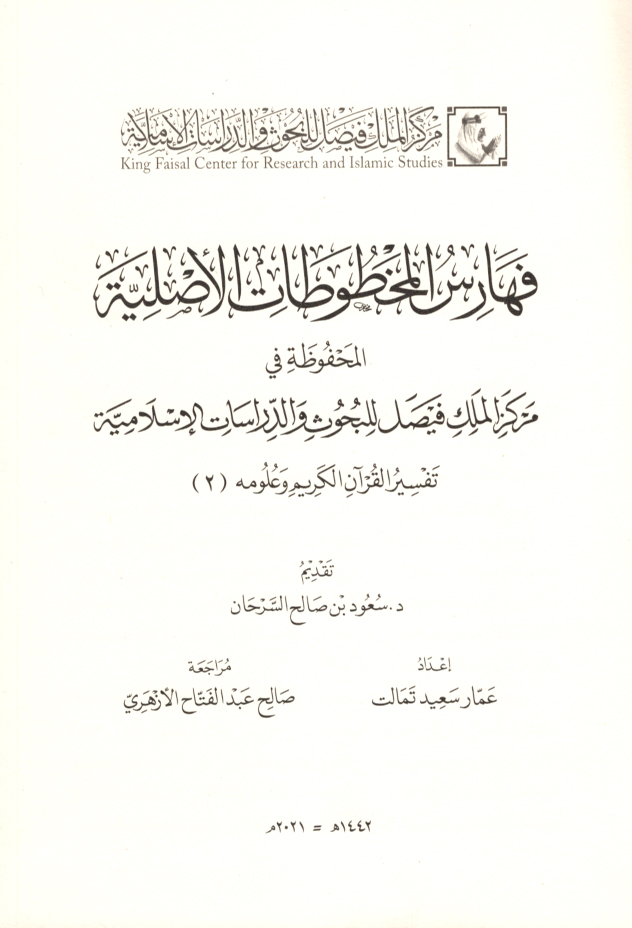 مركز الملك فيصل للبحوث والدراسات الإسلامية
King Faisal Center for Research and Islamic Studies
فَهَارِسُ المَخْطُوطَاتِ الأَصْلِيَّةِ
المَحْفُوظَةِ فِي
مَرْكَزِ المَلَكِ فَيْصَل لِلبُحُوثِ وَالدِّرَاسَاتِ الإِسْلَامِيَّة
تَفْسِيرُ القُرْآنِ الكَرِيمِ وَعُلُومه (٢)
تَقْدِيْمُ
د. سُعُود بْن صَالح السَّرْحَان
إعْدَادُ
عَمَّار سَعِيد تَمَالت
مُرَاجَعَة
صَالِح عَبْد الفَتَّاح الأَزْهَرِيّ
١٤٤٢هـ = ٢٠٢١م